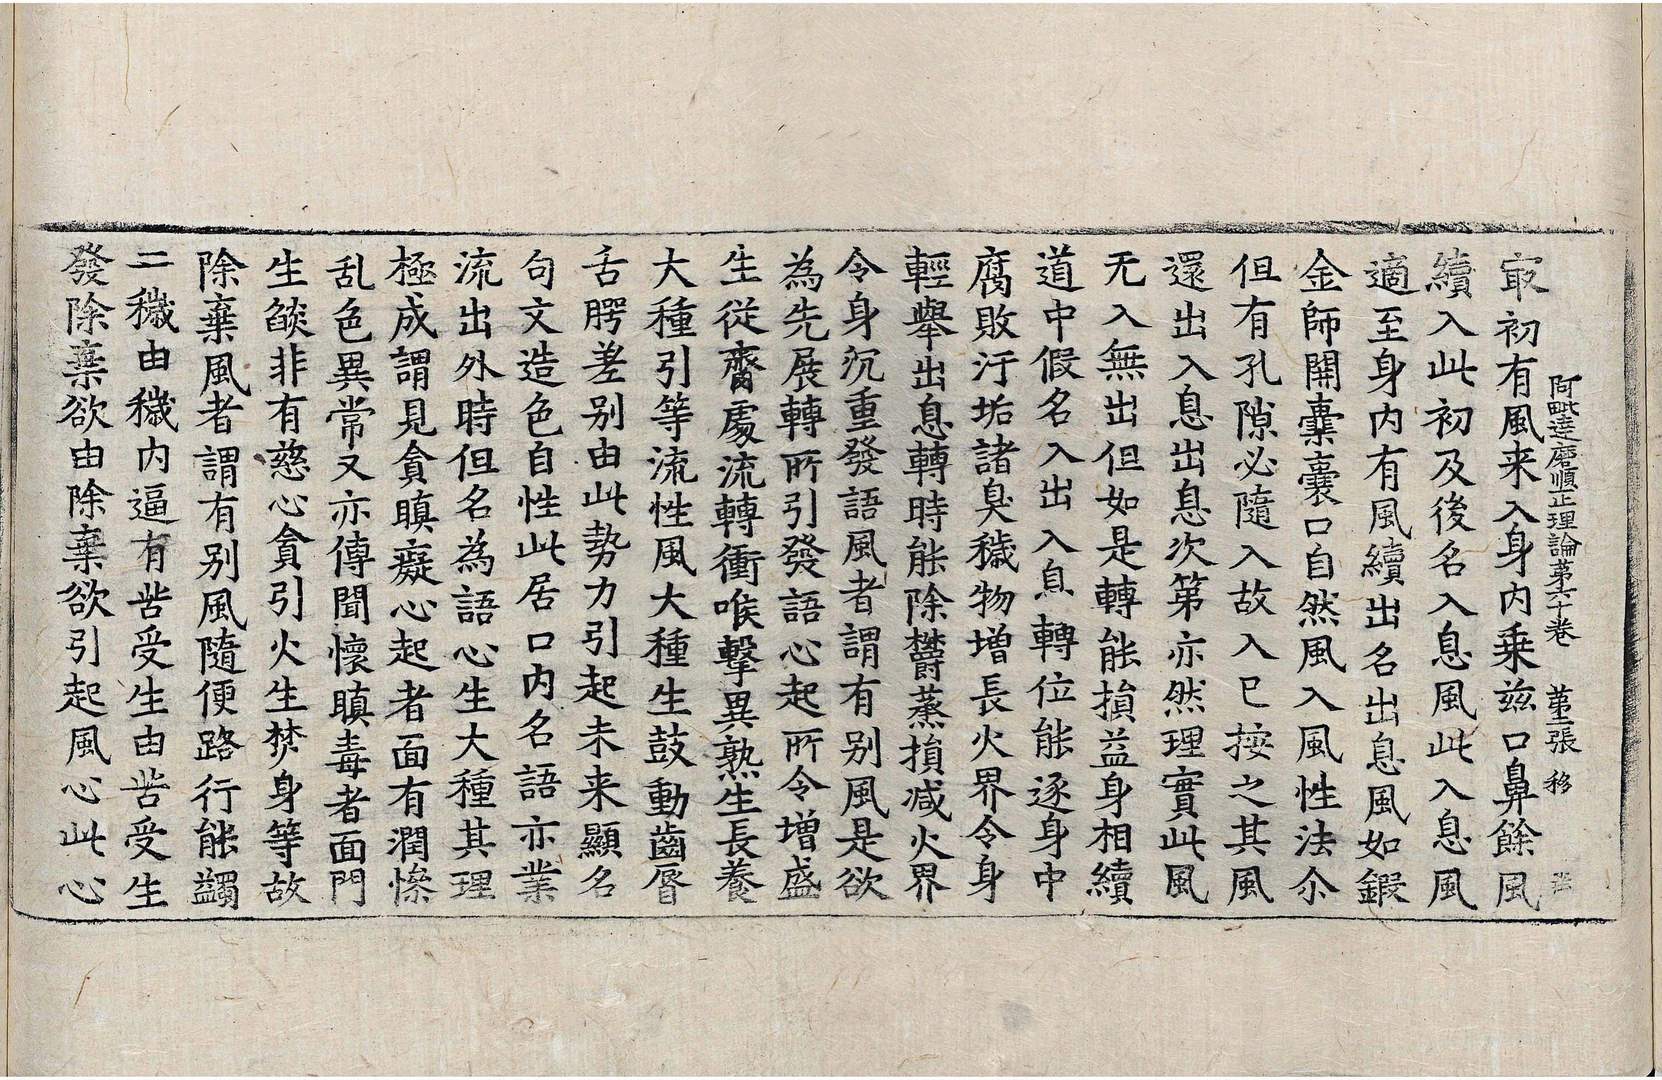 阿毗達磨順正理論第六十卷 第二張 移
㝡初有風来入身内乗兹口鼻餘風
續入此初及後名入息風此入息風
適至身内有風續出名出息風如鍜
金師開橐囊口自然風入風性法尒
但有孔隙必隨入故入已按之其風
還出入息出息次第亦然理實此風
无入無出但如是轉能損益身相續
道中假名入出入息轉位能逐身中
腐敗汙垢諸臭穢物増長火界令身
輕舉出息轉時能除欝蒸損減火界
令身沉重發語風者謂有别風是欲
為先展轉所引發語心起所令増盛
生從齎處流轉衝喉擊異熟生長養
大種引等流性風大種生鼓動齒脣
舌腭差别由此勢力引起未来顯名
句文造色自性此居口内名語亦業
流出外時但名為語心生大種其理
極成謂見貪瞋癡心起者面有潤慘
乱色異常又亦傳聞懷瞋毒者面門
生燄非有慈心貪引火生焚身等故
除棄風者謂有别風隨便路行能蠲
二穢由穢内逼有苦受生由苦受生
發除棄欲由除棄欲引起風心此心